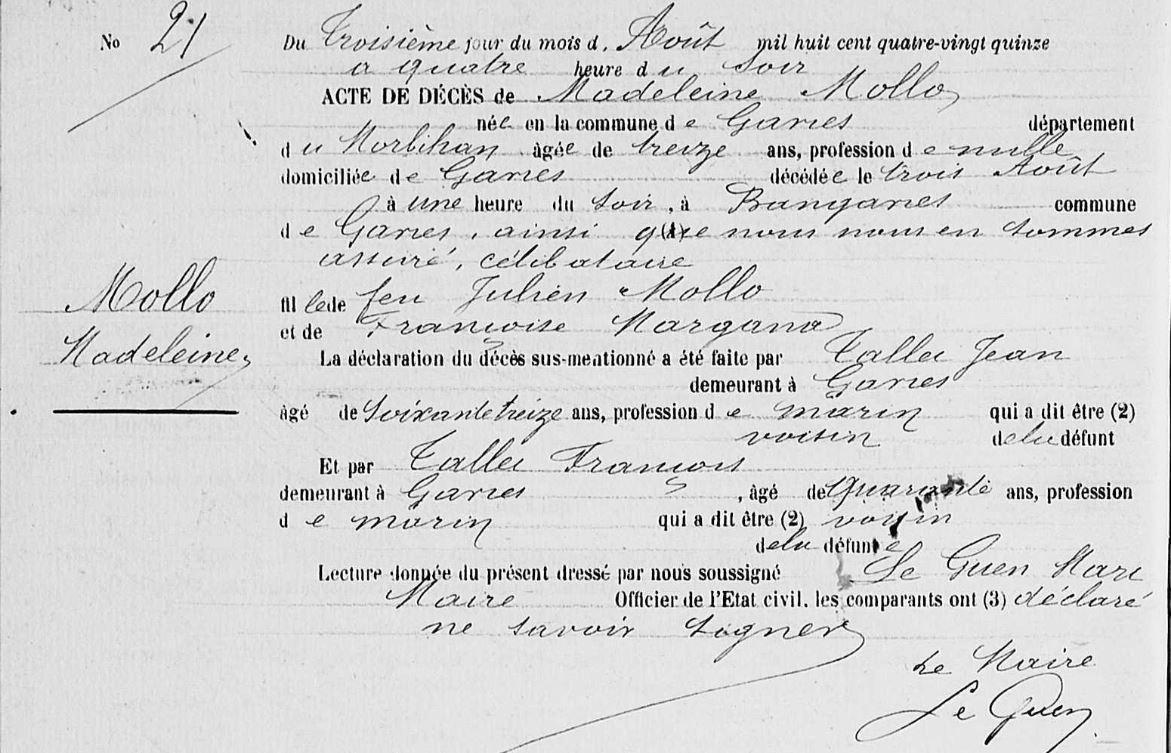 No 21
Du Troisième jour du mois d. Août mil huit cent quatre-vingt quinze
a quatre heure du soir
ACTE DE DÉCÈS de Madeleine Mollo
née en la commune de Gavres département
du Morbihan âgée de treize ans, profession de nulle
domiciliée de Gavres décédée le trois Août
à une heure du soir, à Banganes commune
de Gavres, ainsi que nous nous en sommes
assuré, célibataire
Mollo
Madeleine
fillede feu Julien Mollo
et de Françoise Margana
La déclaration du décès sus-mentionné a été faite par Tallec Jean
demeurant à Gavres
âgé de Soixante treize ans, profession de marin qui a dit être (2)
voisin dela défunt
Et par Tallec François
demeurant à Gavres, âgé de Quarante ans, profession
de marin qui a dit être (2) voisin
dela défunte
Lecture donnée du présent dressé par nous soussigné Le Guen Marc
Maire Officier de l'Etat civil. les comparants ont (3) déclaré
ne savoir signer
Le Maire
Le Guen